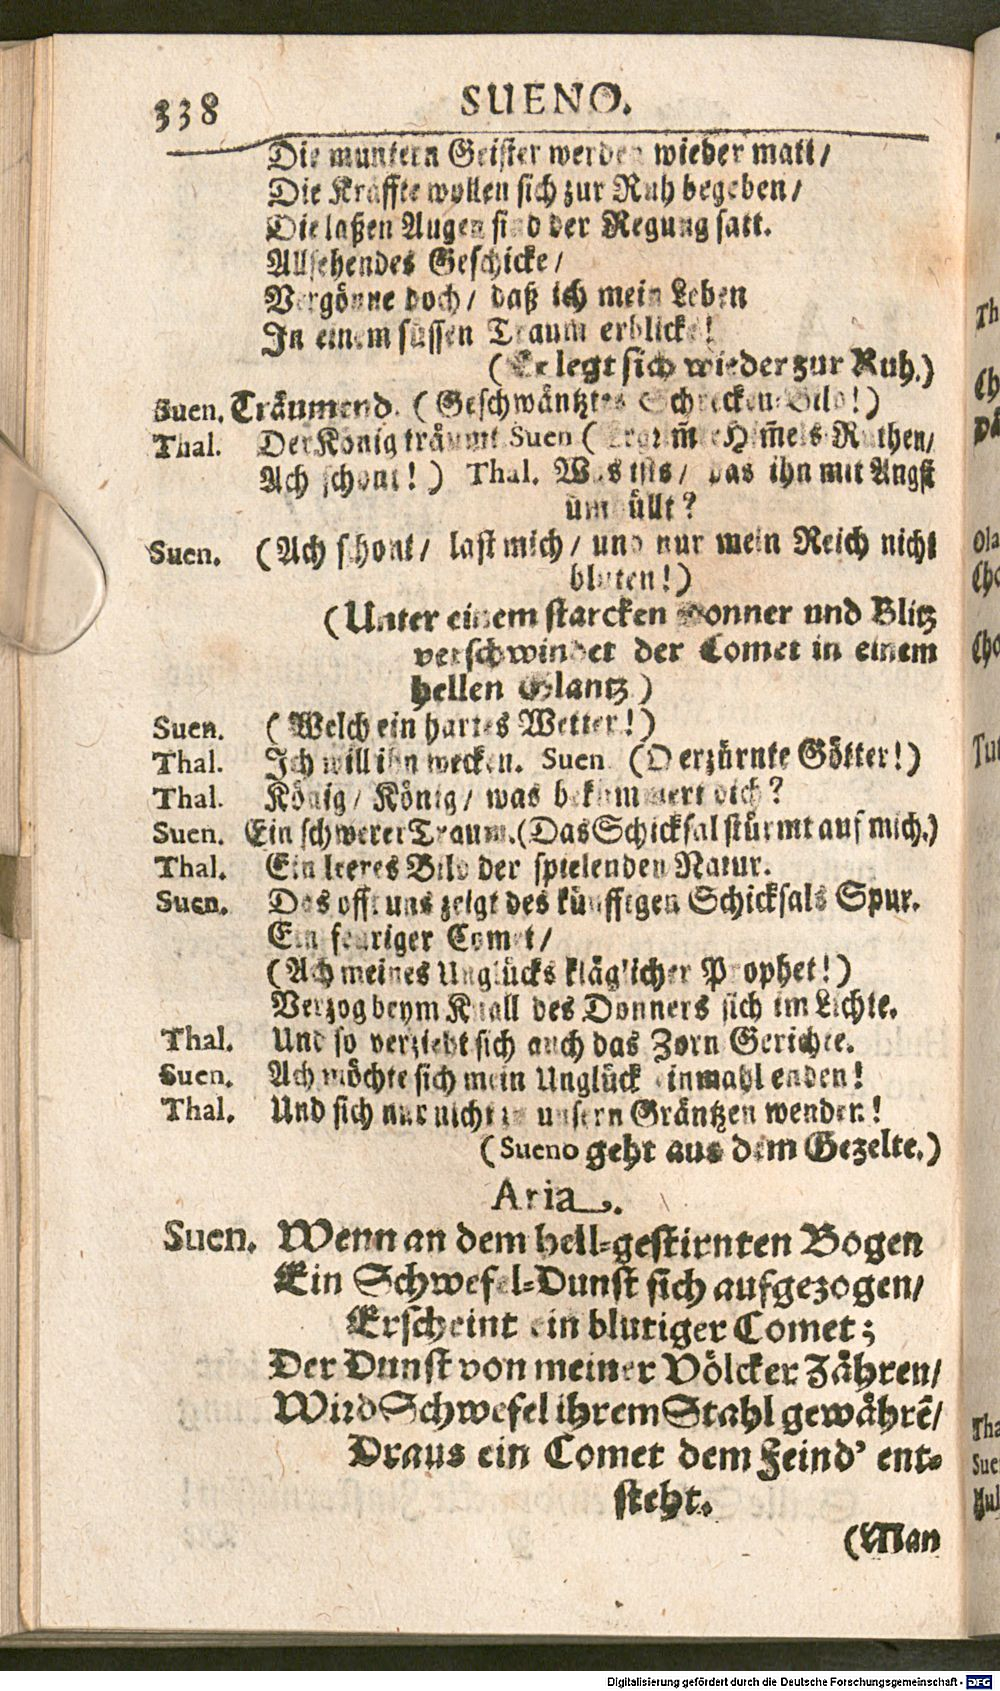 338 SUENO.
Die muntern Geister werden wieder matt/
Die Kräffte wollen sich zur Ruh begeben/
Die laßen Augen sind der Regung satt.
Allsehendes Geschicke/
Vergönne doch/ daß ich mein Leben
In einem süssen Traum erblicke!
(Er legt sich wieder zur Ruh.)
Suen. Träumend. (Geschwäntztes Schrecken-Bild!)
Thal. Der König träumt Suen (Ergrim̃te Him̃els-Ruthen/
Ach schont!) Thal. Was ists/ das ihn mit Angst
umhüllt?
Suen. (Ach schont/ last mich/ und nur mein Reich nicht
bluten!)
(Unter einem starcken Donner und Blitz
verschwindet der Comet in einem
hellen Glantz)
Suen. (Welch ein hartes Wetter!)
Thal. Ich will ihn wecken. Suen. (O erzürnte Götter!)
Thal. König/ König/ was bekümmert dich?
Suen. Ein schwerer Traum. (Das Schicksal stürmt auf mich.)
Thal. Ein leeres Bild der spielenden Natur.
Suen. Das offt uns zeigt des künfftigen Schicksals Spur.
Ein feuriger Comet/
(Ach meines Unglücks kläglicher Prophet!)
Verzog beym Knall des Donners sich im Lichte.
Thal. Und so verziebt sich auch das Zorn Gerichte.
Suen. Ach möchte sich mein Unglück einmahl enden!
Thal. Und sich nur nicht zu unsern Gräntzen wenden!
(Sueno geht aus dem Gezelte.)
Aria.
Suen. Wenn an dem hell-gestirnten Bogen
Ein Schwefel-Dunst sich aufgezogen/
Erscheint ein blutiger Comet;
Der Dunst von meiner Völcker Zähren/
Wird Schwefel ihrem Stahl gewährẽ/
Draus ein Comet dem Feind' ent-
steht.
(Man
Th
Ch
Dä
Ola
Cho
Cho
Tut
Tha
Sue
Digitalisierung gefördert durch die Deutsche Forschungsgemeinschaft - DFG